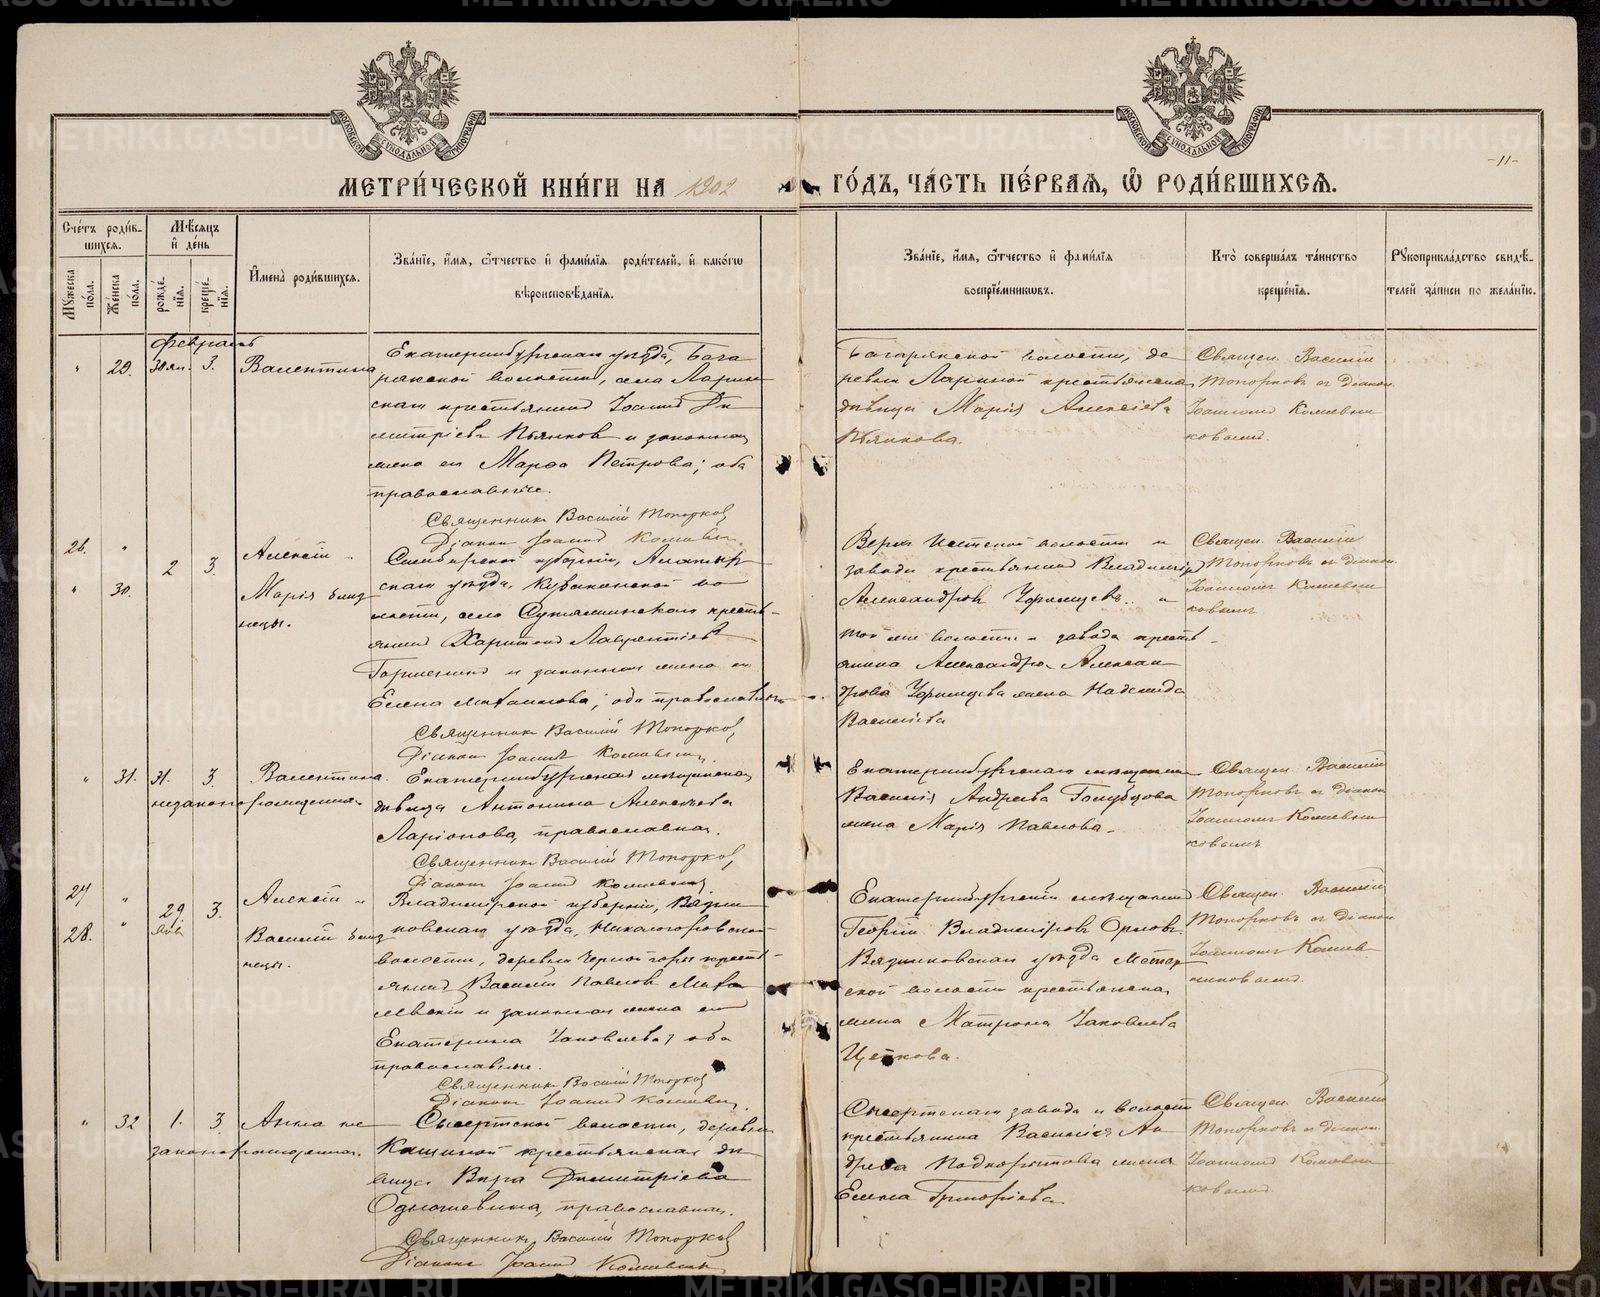 МЕТРИ́ЧЕСКОЙ КНИ́ГИ НА 1902 ГО́ДЪ, ЧА́СТЬ ПЕ́РВАЯ, Ѡ҆ РОДИ́ВШИХСЯ.
-11-
Сче́тъ роди́в-
шихся.
Мꙋжеска
по́ла.
Же́нска
по́ла.
Мѣ́сяцъ
и҆ де́нь
рожде́-
нїя.
креще́-
нїя.
И҆мена̀ роди́вшихся.
Зва́нїе, и҆́мя, ѻ҆́тчество и҆ фами́лїя роди́телей, и҆ како́гѡ
вѣроисповѣ́данїя.
Зва́нїе, и҆́мя, ѻ҆́тчество и҆ фами́лїя
воспрїе́мниковъ.
Кто̀ соверша́лъ та́инство
креще́нїя.
Рꙋкоприкла́дство свидѣ́-
телей за́писи по жела́нїю.
Февраль
" 29. 30 ян. 3. Валентина
Екатеринбургскаго уѣзда, Бага
рякской волости, села Ларин
скаго крестьянинъ Іоаннъ Ди
митріевъ Пьянковъ и законная
жена его Марѳа Петрова; оба
православные.
Священникъ Василій Топорковъ
Діаконъ Іоаннъ
Багарякской волости, де
ревни Лариной крестьянская
дѣвица Марія Алексіева
Пьянкова.
Священ. Василій
Топорковъ съ діакон.
Іоанномъ
ковымъ.
26. " 2 3. Алексій и
" 30. Марія близ
нецы.
Симбирской губерніи, Алатыр
скаго уѣзда, Кувакинской во
лости, села крестья
янинъ Харитонъ Лаврентіевъ
и законная жена его
Елена Михаилова; оба православны
Священникъ Василій Топорковъ
Діаконъ Іоаннъ
Верхъ Исетской волости и
завода крестьянинъ Владиміръ
Александровъ и
той же волости и завода кресть
янина Александра Алексан
дрова жена Надежда
Василіева
Священ. Василій
Топорковъ съ діакон.
Іоанномъ
ковымъ
" 31. 31. 3. Валентина
незаконнорожденная.
Екатеринбургская мѣщанская
дѣвица Антонина Алексѣева
Ларіонова, православная.
Священникъ Василій Топорковъ
Діаконъ Іоаннъ
Екатеринбургскаго мѣщанина
Василія Андреева Голубцова
жена Марія Павлова.
Священ. Василій
Топорковъ съ діакон
Іоанномъ
ковымъ
27 " 29. янв 3. Алексій и
28. " Василій близ
нецы.
Владимірской губерніи, Вязни
ковскаго уѣзда, Никологорской
волости, деревни Черной горы кресть
янинъ Василій Павловъ
и законная жена его
Екатерина Іаковлева; оба
православные.
Священникъ Василій Топорковъ
Діаконъ Іоаннъ
Екатеринбургскій мѣщанинъ
Георгій Владиміровъ Орловъ.
Вязниковскаго уѣзда Мстер
ской волости крестьянская
жена Матрона Іаковлева
Цепкова.
Священ. Василій
Топорковъ съ діакон
Іоанномъ
никовымъ.
" 32 1. 3. Анна не
законнорожденная.
Сысертской волости, деревни
Кашиной крестьянская дѣ
вица Вѣра Димитріева
Одношевина, православная.
Священникъ Василій Топорковъ
Діаконъ Іоаннъ
Сысертскаго завода и волости
крестьянина Василія Ан
дреева Подкорытова жена
Елена Григоріева.
Священ. Василій
Топорковъ съ діакон
Іоанномъ
ковымъ.
METRIKI.GASO-URAL.RU